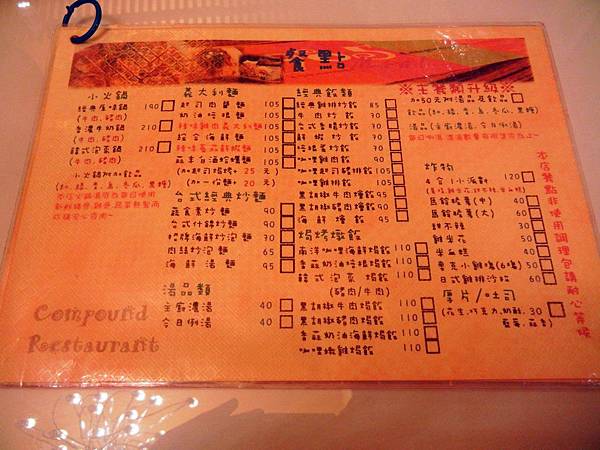 餐點
小火鍋
經典原味鍋 190
(牛肉, 豬肉)
香濃牛奶鍋 210
(牛肉, 豬肉)
韓式泡菜鍋 210
(牛肉, 豬肉)
小火鍋附加飲品
Compound
Restaurant
義大利麵
起司肉醬麵 105
奶油培根麵 105
辣味雞肉義大利麵 105
綜合海鮮麵 105
辣味蕃茄鮮蝦麵 105
蒜未白酒蛤蠣麵 105
(加起司焗烤+ 25 元)
(加一份麵+ 20 元)
台式經典炒麵
蔬食素炒麵 70
台式什錦炒麵 70
招牌海鮮炒泡麵 90
肉絲炒泡麵 65
海鮮湯麵 95
湯品類
主廚濃湯 40
今日例湯 40
經典飯類
經典雞排炒飯 85
牛肉炒飯 70
台式香腸炒飯 70
鮮蝦炒飯 80
培根蛋炒飯 70
咖哩雞肉飯 90
咖哩起司豬排飯 110
咖哩雞排飯 105
黑胡椒牛肉燴飯 95
黑胡椒豬肉燴飯 95
海鮮燴飯 95
焗烤燉飯
南洋咖哩海鮮焗飯 110
香菇奶油培根焗飯 110
韓式泡菜焗飯 110
(豬肉/牛肉)
黑胡椒牛肉焗飯 110
黑胡椒豬肉焗飯 110
香菇奶油海鮮焗飯 110
咖哩嫩雞焗飯 110
※主餐類升級※
加50元附湯品及飲品
飲品(紅, 綠, 青, 烏, 冬瓜, 黑糖)
湯品(主廚濃湯, 今日例湯)
炸物
4合1小派對 120
馬鈴薯薯(中) 40
馬鈴薯薯(大) 60
甜不辣 30
雞米花 50
米血糕 40
麥克小雞塊(6塊) 50
日式雞排沙拉 60
厚片/吐司
(花生, 巧克力, 奶酥, 30
草莓, 蒜香)
本店餐點非使用調理包請耐心等候